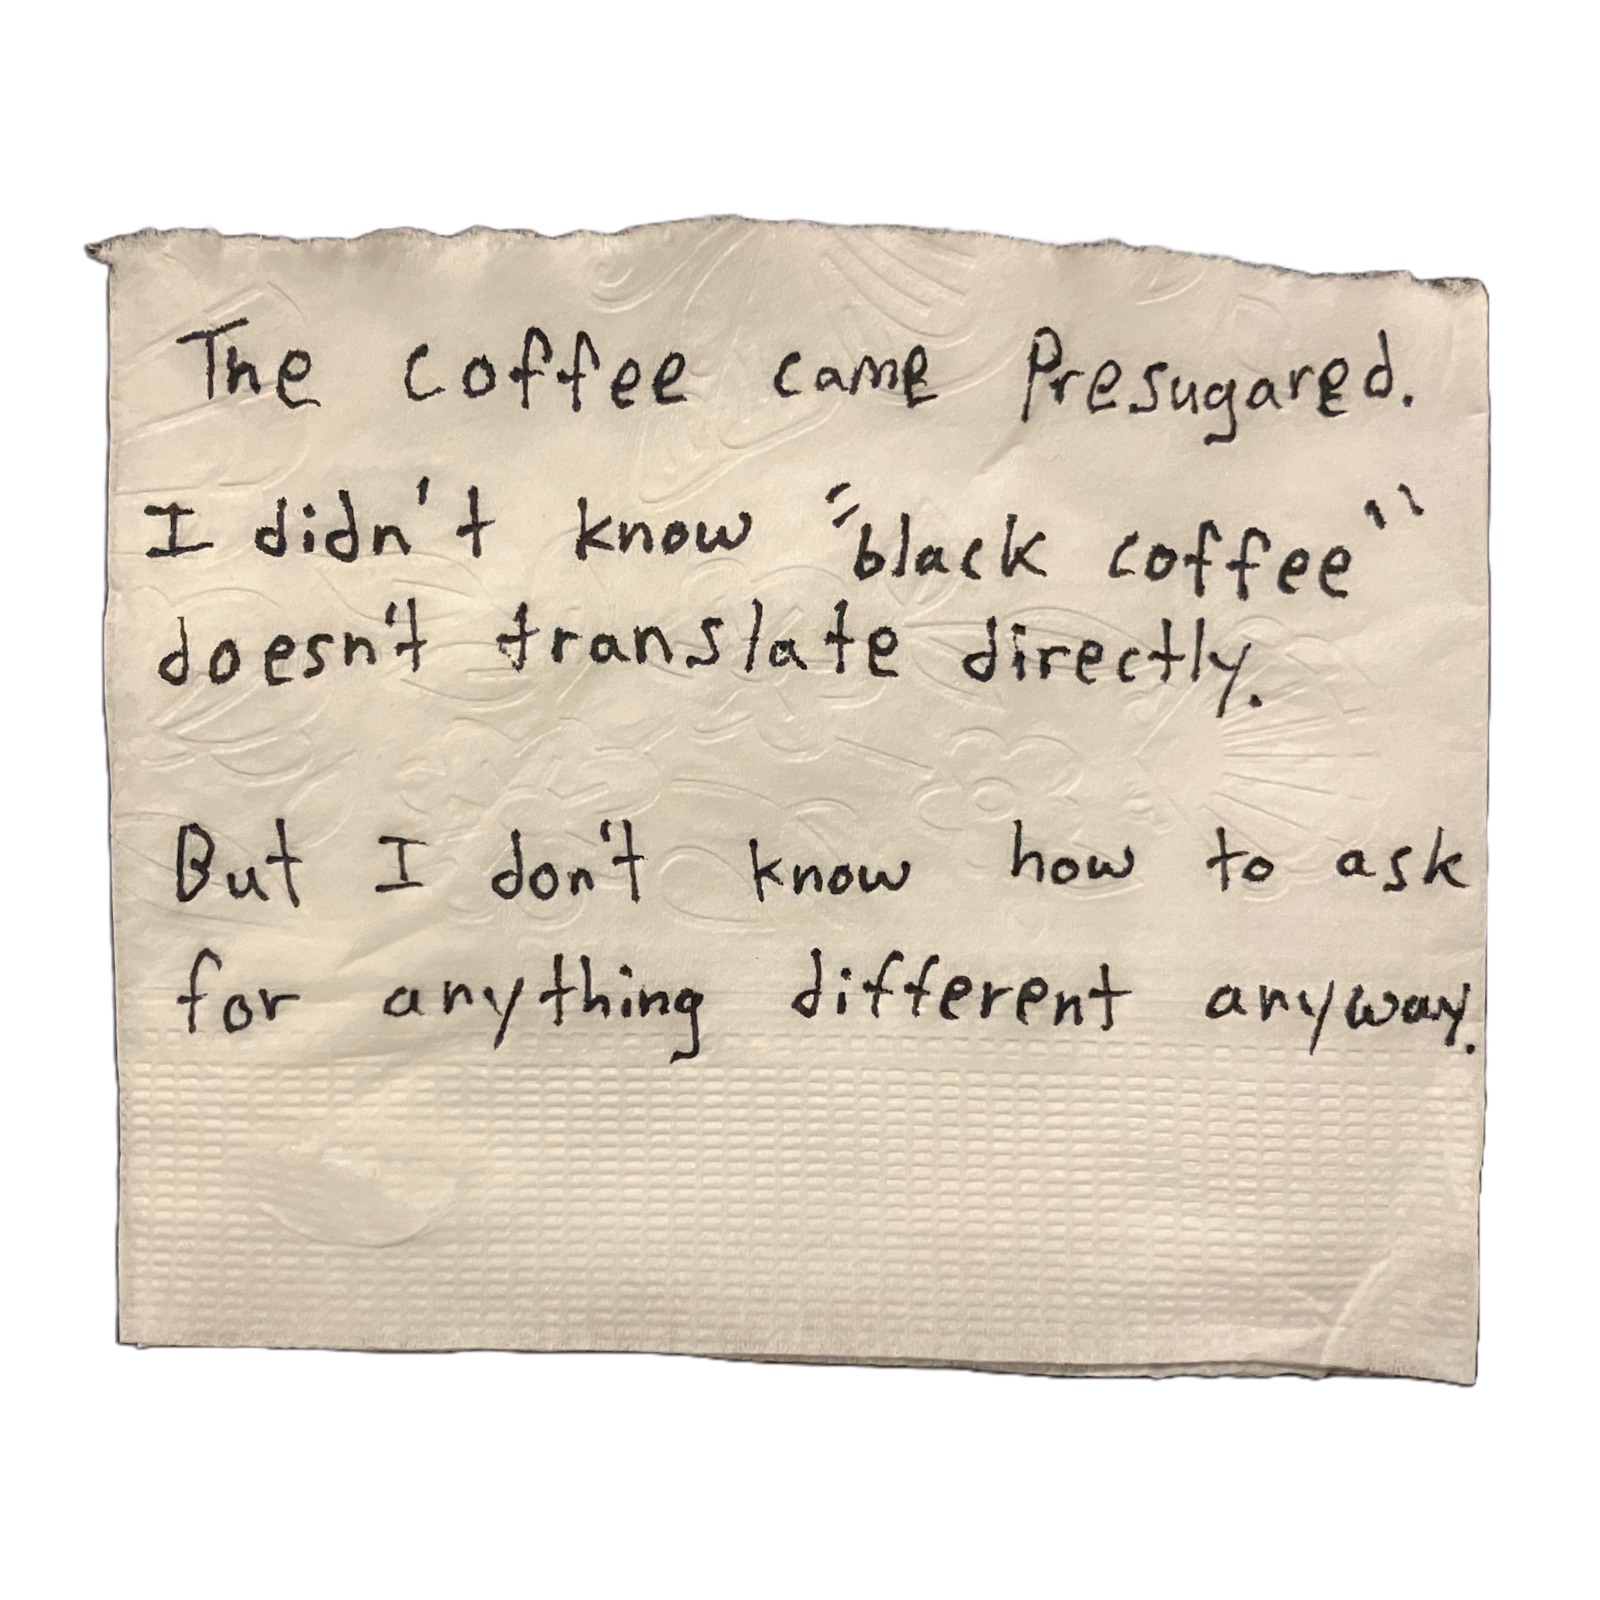 The coffee came Presugared.
I didn't know "black coffee"
doesn't translate directly.
But I don't know how to ask
for anything different anyway.